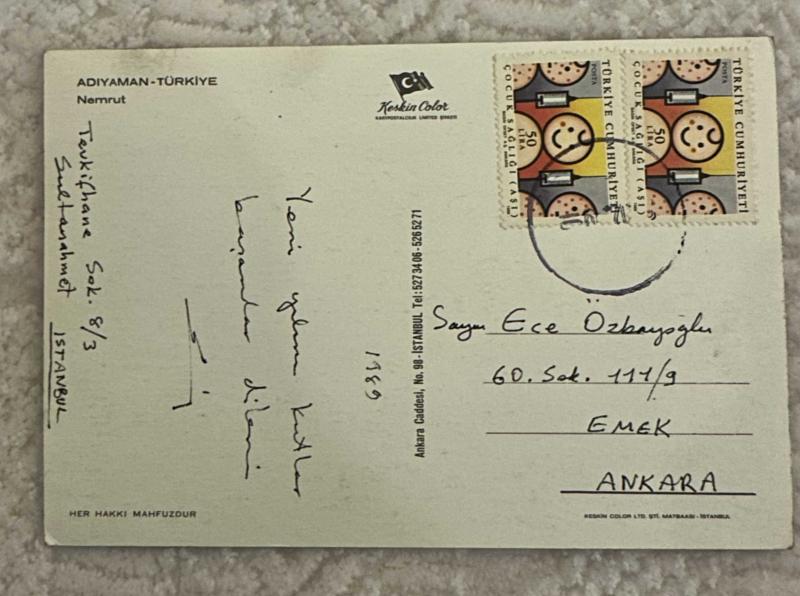 ADIYAMAN-TÜRKİYE
Nemrut
Keskin Color
KARTPOSTALCILIK LIMITED ŞİRKETİ
TÜRKİYE CUMHURİYETİ
POSTA
50
LİRA
ÇOCUK SAĞLIĞI (AŞI)
TÜRKİYE CUMHURİYETİ
POSTA
50
LİRA
ÇOCUK SAĞLIĞI (AŞI)
Tevkifhane Sok. 8/3
Sultanahmet
İSTANBUL
Yeni yılını kutlar
başarılar dilerim
1989
Ankara Caddesi, No. 98-İSTANBUL Tel: 5273406-5265271
Sayın Ece Özbayoğlu
60. Sok. 111/9
EMEK
ANKARA
HER HAKKI MAHFUZDUR
KESKİN COLOR LTD. ŞTİ. MATBAASI-İSTANBUL